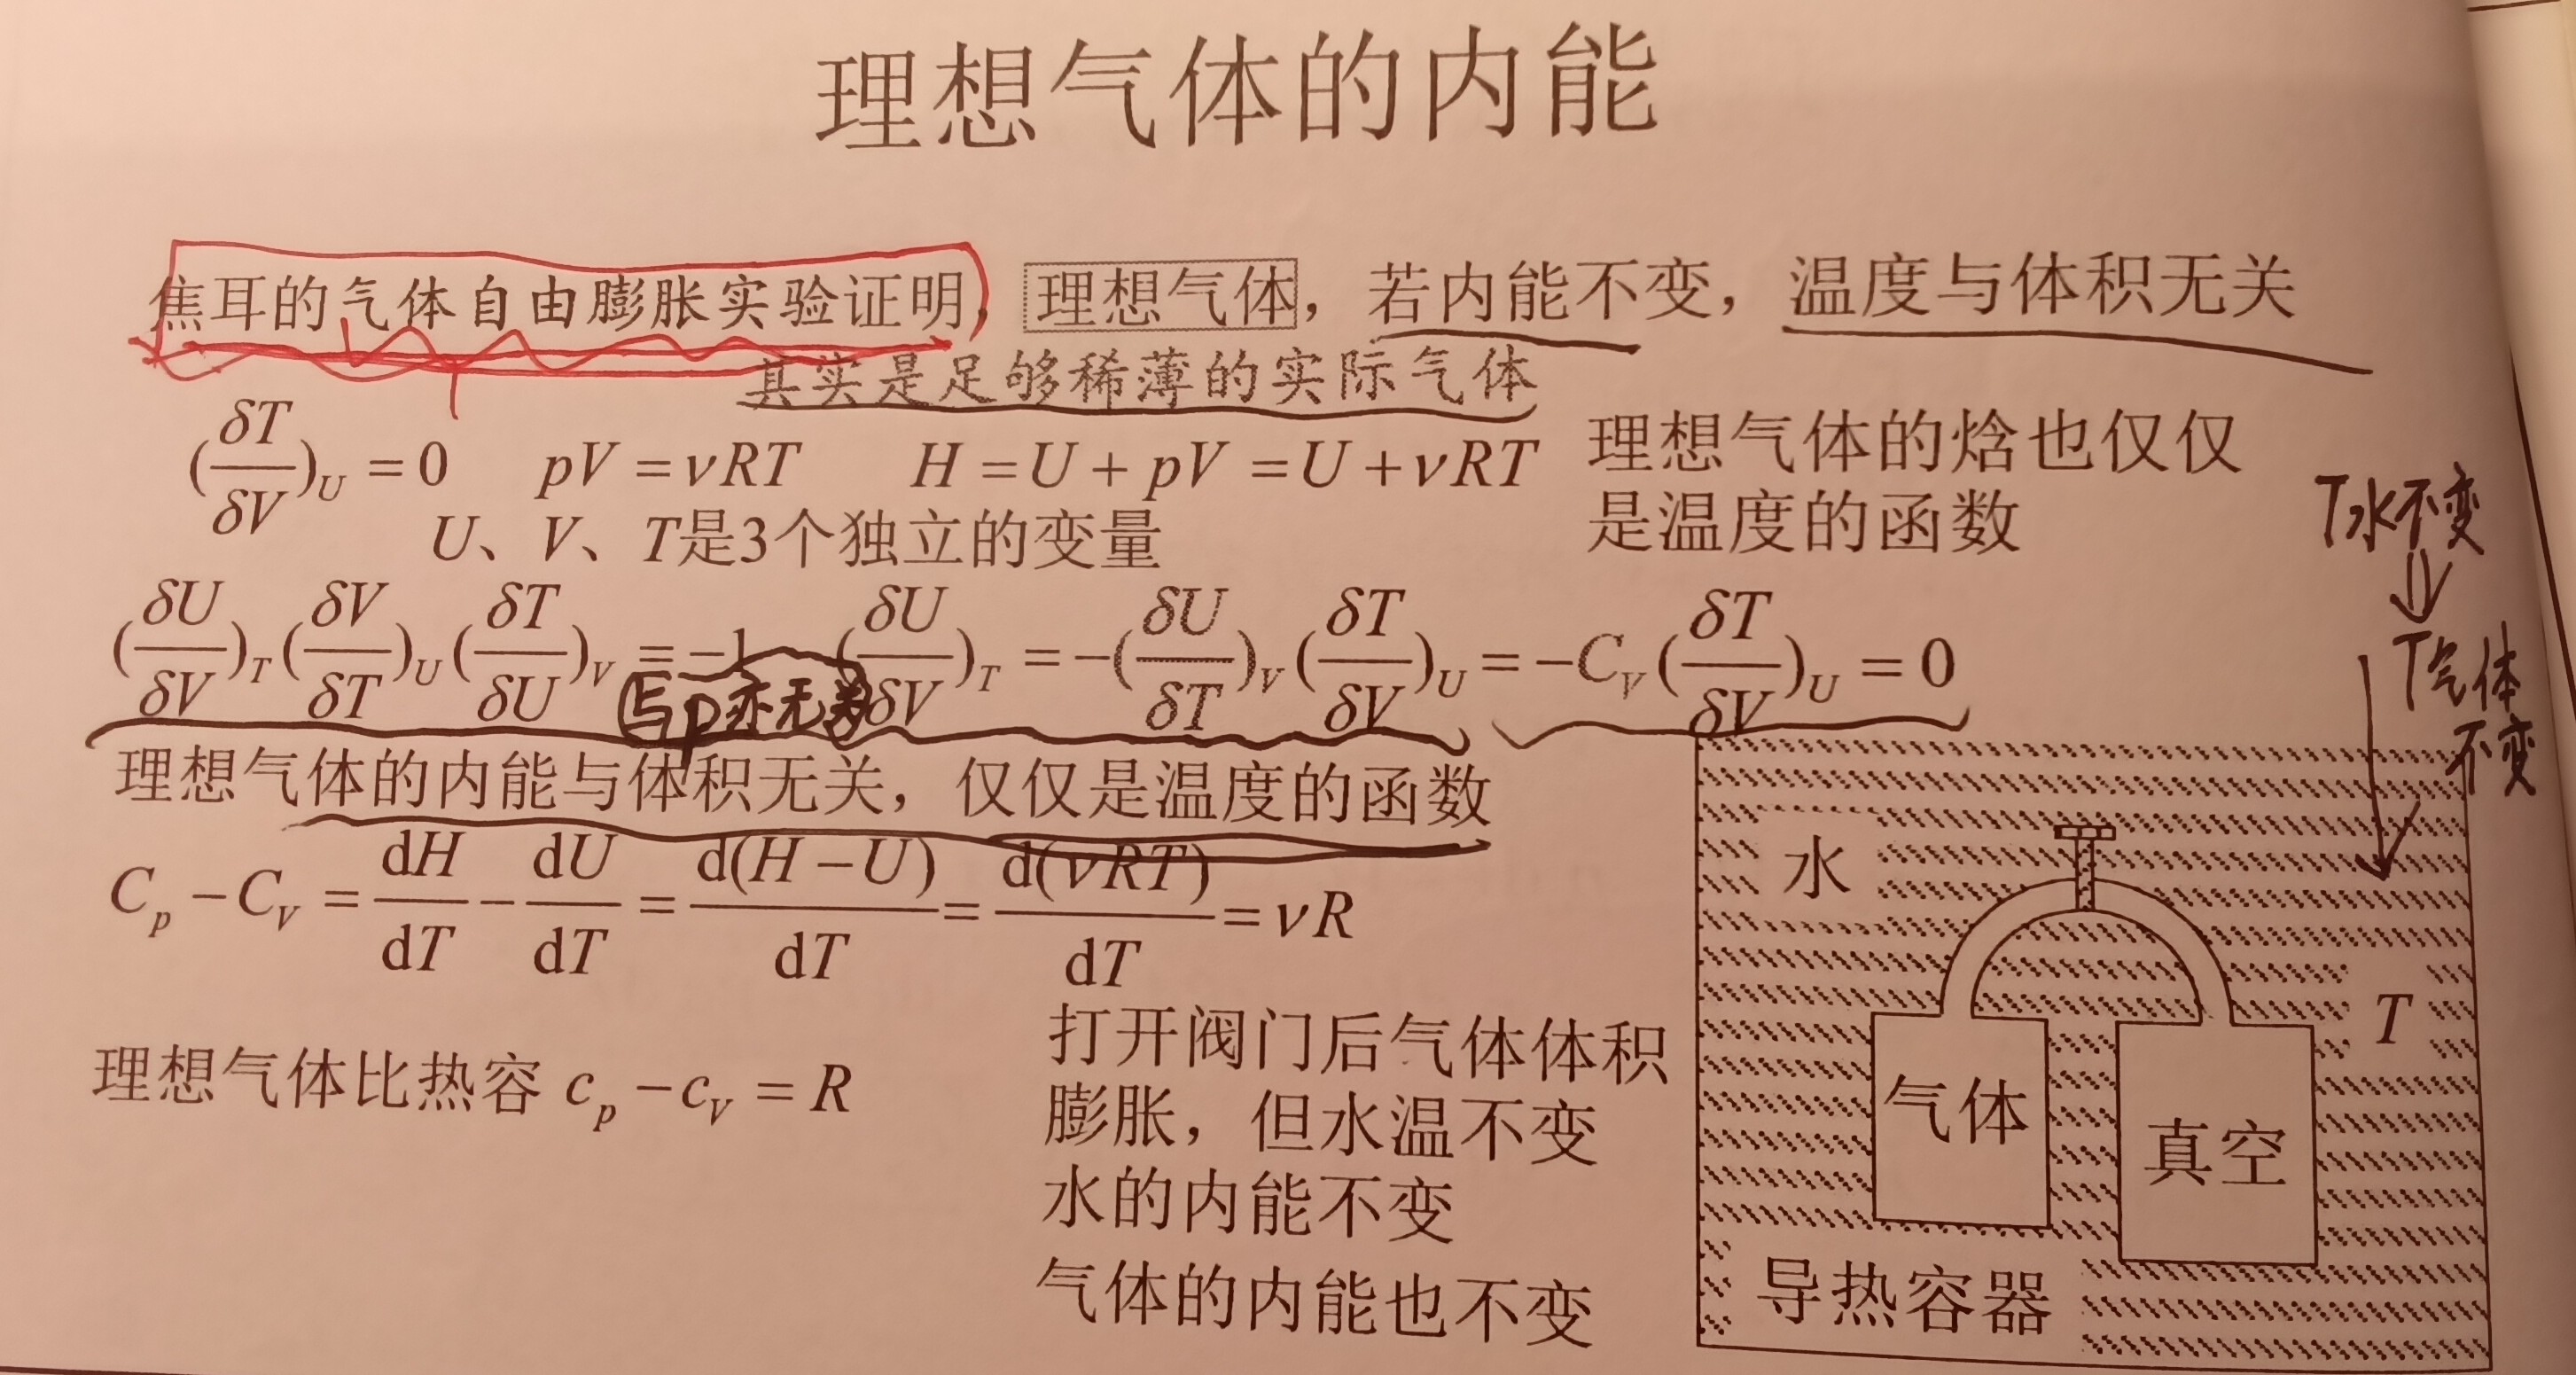 理想气体的内能
焦耳的气体自由膨胀实验证明, 理想气体, 若内能不变, 温度与体积无关
其实是足够稀薄的实际气体
(δT/δV)_U = 0 pV = νRT H = U + pV = U + νRT
理想气体的焓也仅仅
是温度的函数
U、V、T是3个独立的变量
T水不变
⇓
T气体
不变
(δU/δV)_T (δV/δT)_U (δT/δU)_V = -1 (δU/δV)_T = -(δU/δT)_V (δT/δV)_U = -C_V (δT/δV)_U = 0
与p亦无关
理想气体的内能与体积无关, 仅仅是温度的函数
C_p - C_V = dH/dT - dU/dT = d(H-U)/dT = d(νRT)/dT = νR
理想气体比热容 c_p - c_V = R
打开阀门后气体体积
膨胀, 但水温不变
水的内能不变
气体的内能也不变
水
T
气体
真空
导热容器